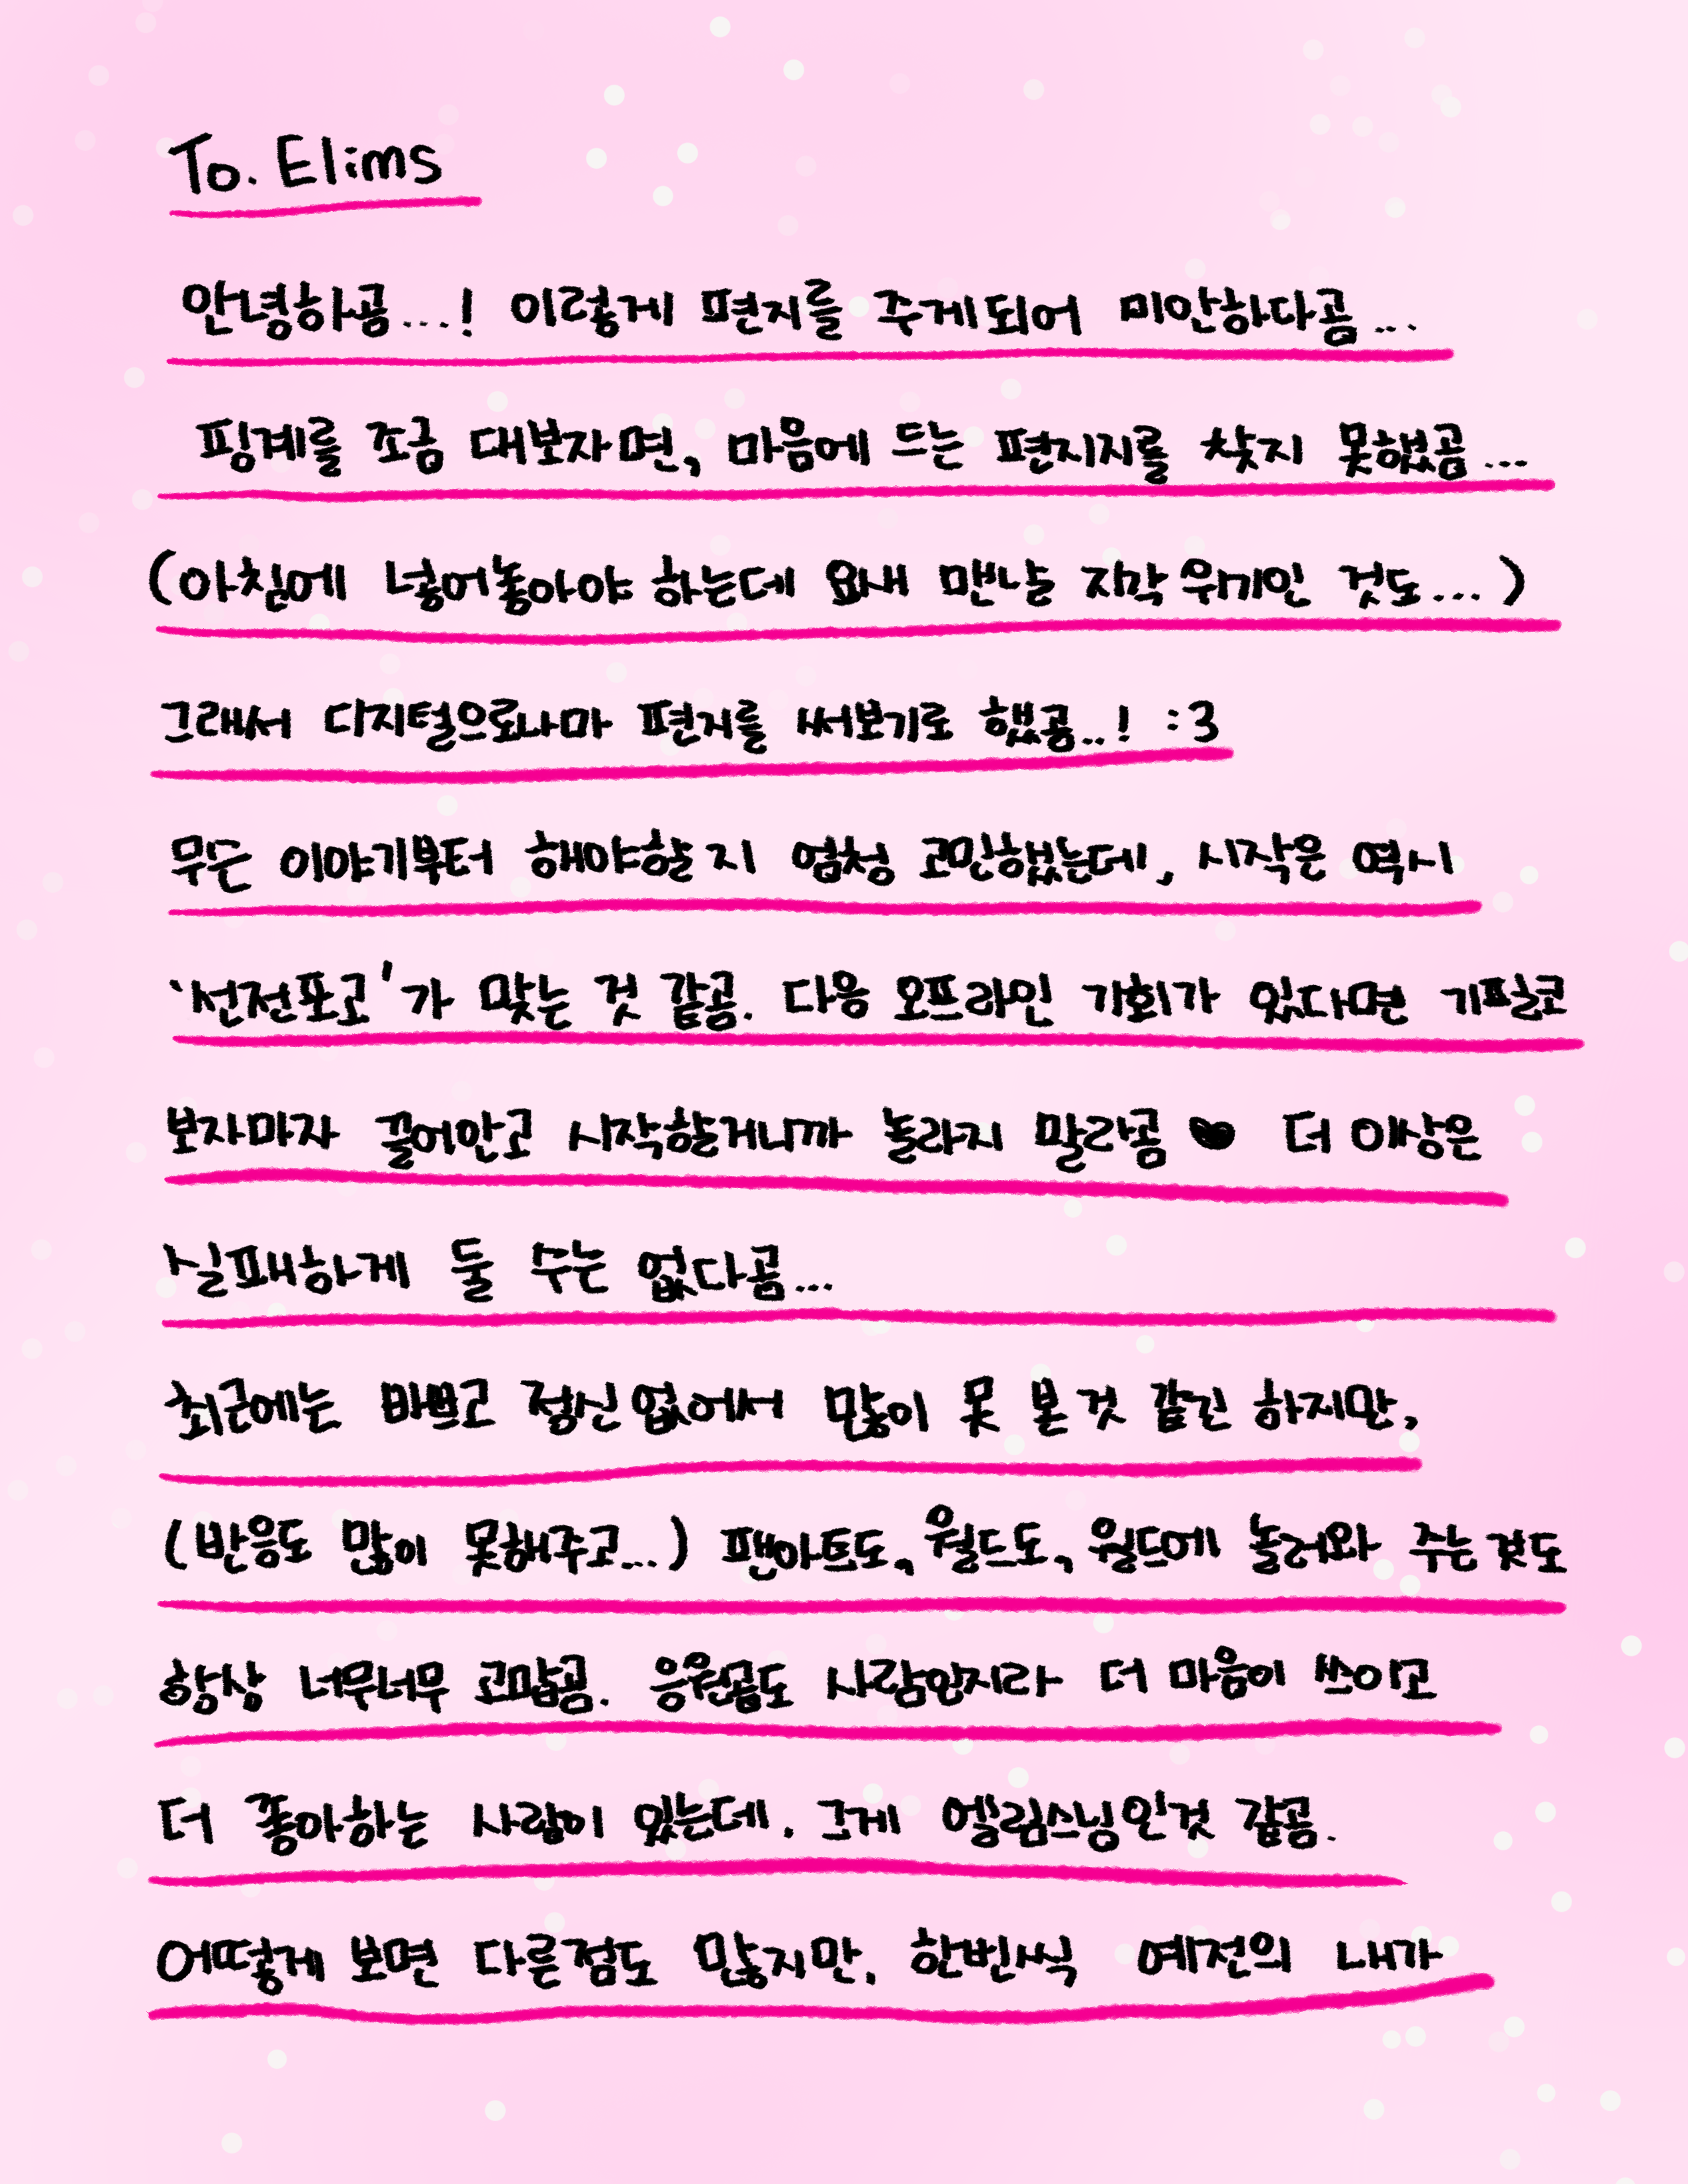 To. Elims
안녕하곰...! 이렇게 편지를 주게되어 미안하다곰...
핑계를 조금 대보자면, 마음에 드는 편지지를 찾지 못했곰...
(아침에 넣어놓아야 하는데 요새 맨날 지각 위기인 것도...)
그래서 디지털으로나마 편지를 써보기로 했곰..! :3
무슨 이야기부터 해야할 지 엄청 고민했는데, 시작은 역시
'선전포고'가 맞는 것 같곰. 다음 오프라인 기회가 있다면 기필코
보자마자 끌어안고 시작할거니까 놀라지 말라곰 ♥ 더 이상은
실패하게 둘 수는 없다곰...
최근에는 바쁘고 정신없어서 많이 못 본 것 같긴 하지만,
(반응도 많이 못해주고...) 팬아트도, 월드도, 월드에 놀러와 주는 것도
항상 너무너무 고맙곰. 응원곰도 사람인지라 더 마음이 쓰이고
더 좋아하는 사람이 있는데, 그게 엘림스님인것 같곰.
어떻게 보면 다른점도 많지만, 한번씩 예전의 내가